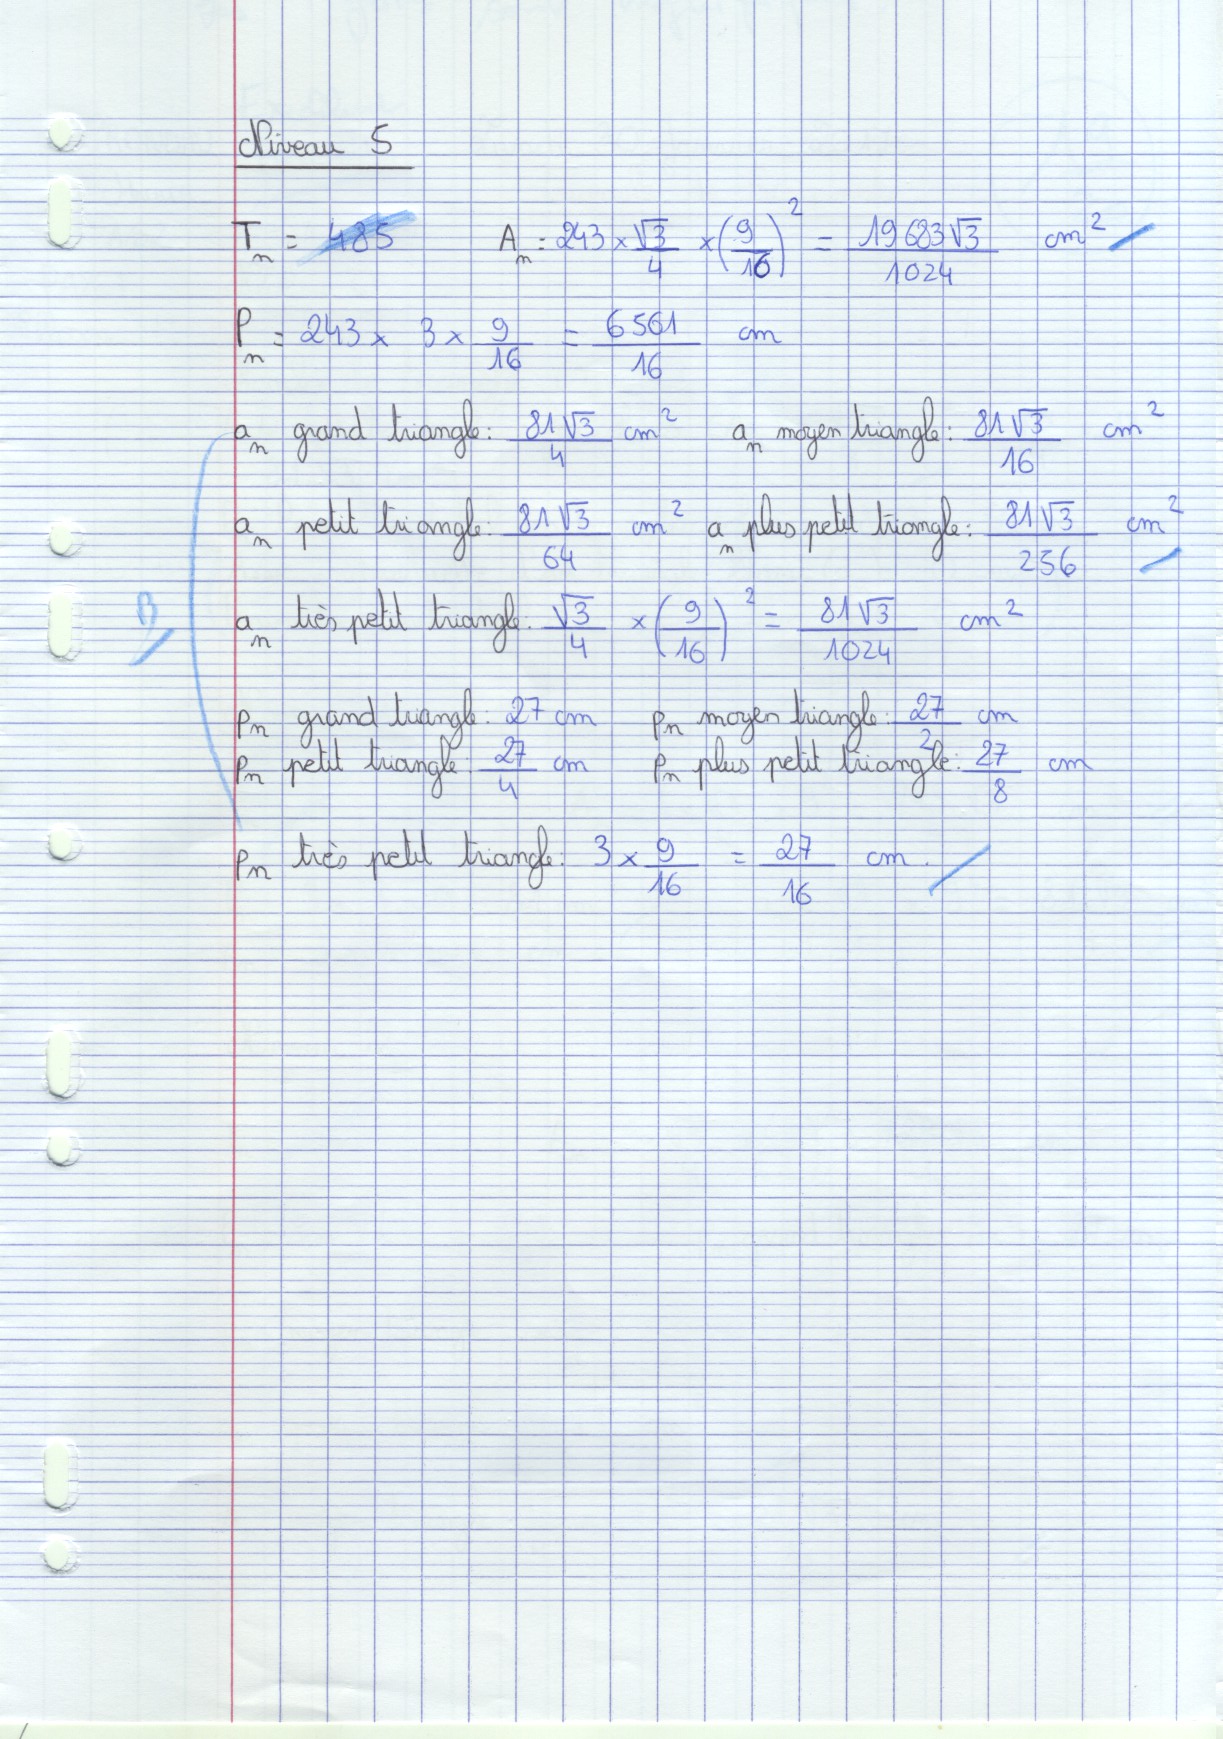 Niveau 5
Tn = 485 An = 243 × √3/4 × (9/16)² = 19683√3/1024 cm²
Pn = 243 × 3 × 9/16 = 6561/16 cm
an grand triangle: 81√3/4 cm² an moyen triangle: 81√3/16 cm²
an petit triangle: 81√3/64 cm² an plus petit triangle: 81√3/256 cm²
an très petit triangle: √3/4 × (9/16)² = 81√3/1024 cm²
pn grand triangle: 27 cm pn moyen triangle: 27/2 cm
pn petit triangle: 27/4 cm pn plus petit triangle: 27/8 cm
pn très petit triangle: 3 × 9/16 = 27/16 cm.